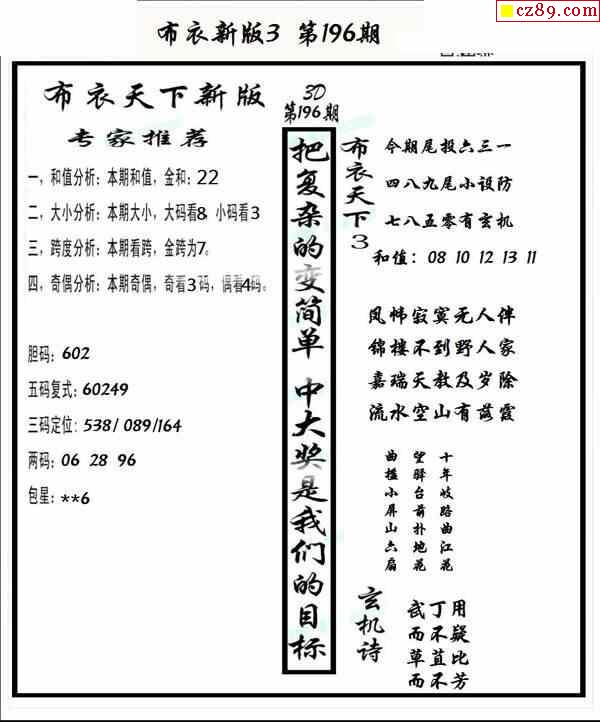 cz89.com
布衣新版3 第196期
布衣天下新版
专家推荐
一，和值分析：本期和值，金和：22
二，大小分析：本期大小，大码看8 小码看3
三，跨度分析：本期看跨，金跨为7。
四，奇偶分析：本期奇偶，奇看3码，偶看4码。
胆码：602
五码复式：60249
三码定位：538/ 089/164
两码：06 28 96
包星：**6
3D
第196期
把复杂的变简单 中大奖是我们的目标
布衣天下3
今期尾投六三一
四八九尾小设防
七八五零有玄机
和值：08 10 12 13 11
凤帏寂寞无人伴
锦楼不到野人家
嘉瑞天教及岁除
流水空山有落霞
十年岐路曲江花
望驿台前扑地花
曲槛小屏山六扇
玄机诗
武丁用
而不疑
草苴比
而不芳